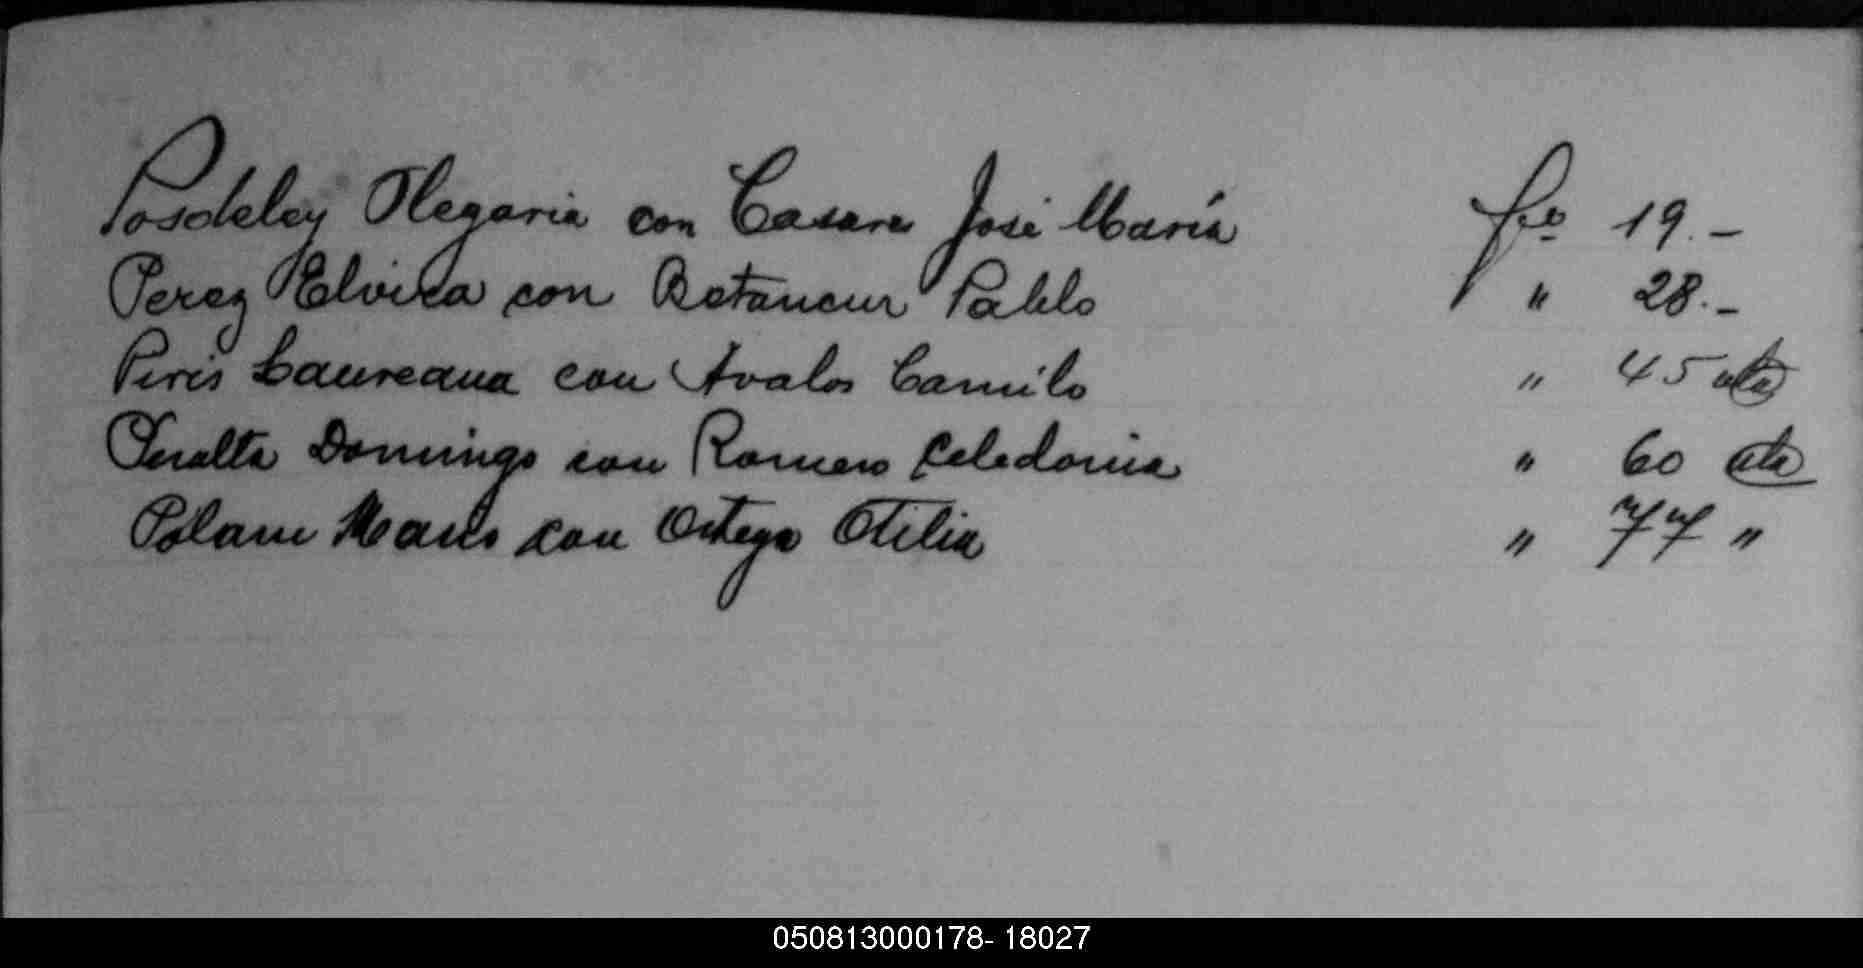 Posdeley Olegaria con Casare José María fo 19.-
Perez Elvira con Betancur Pablo " 28.-
Piris Laureana con Avalos Camilo " 45 vta
Peralta Domingo con Romero Celedonia " 60 vta
con Ortega Otilia " 77 "
050813000178- 18027